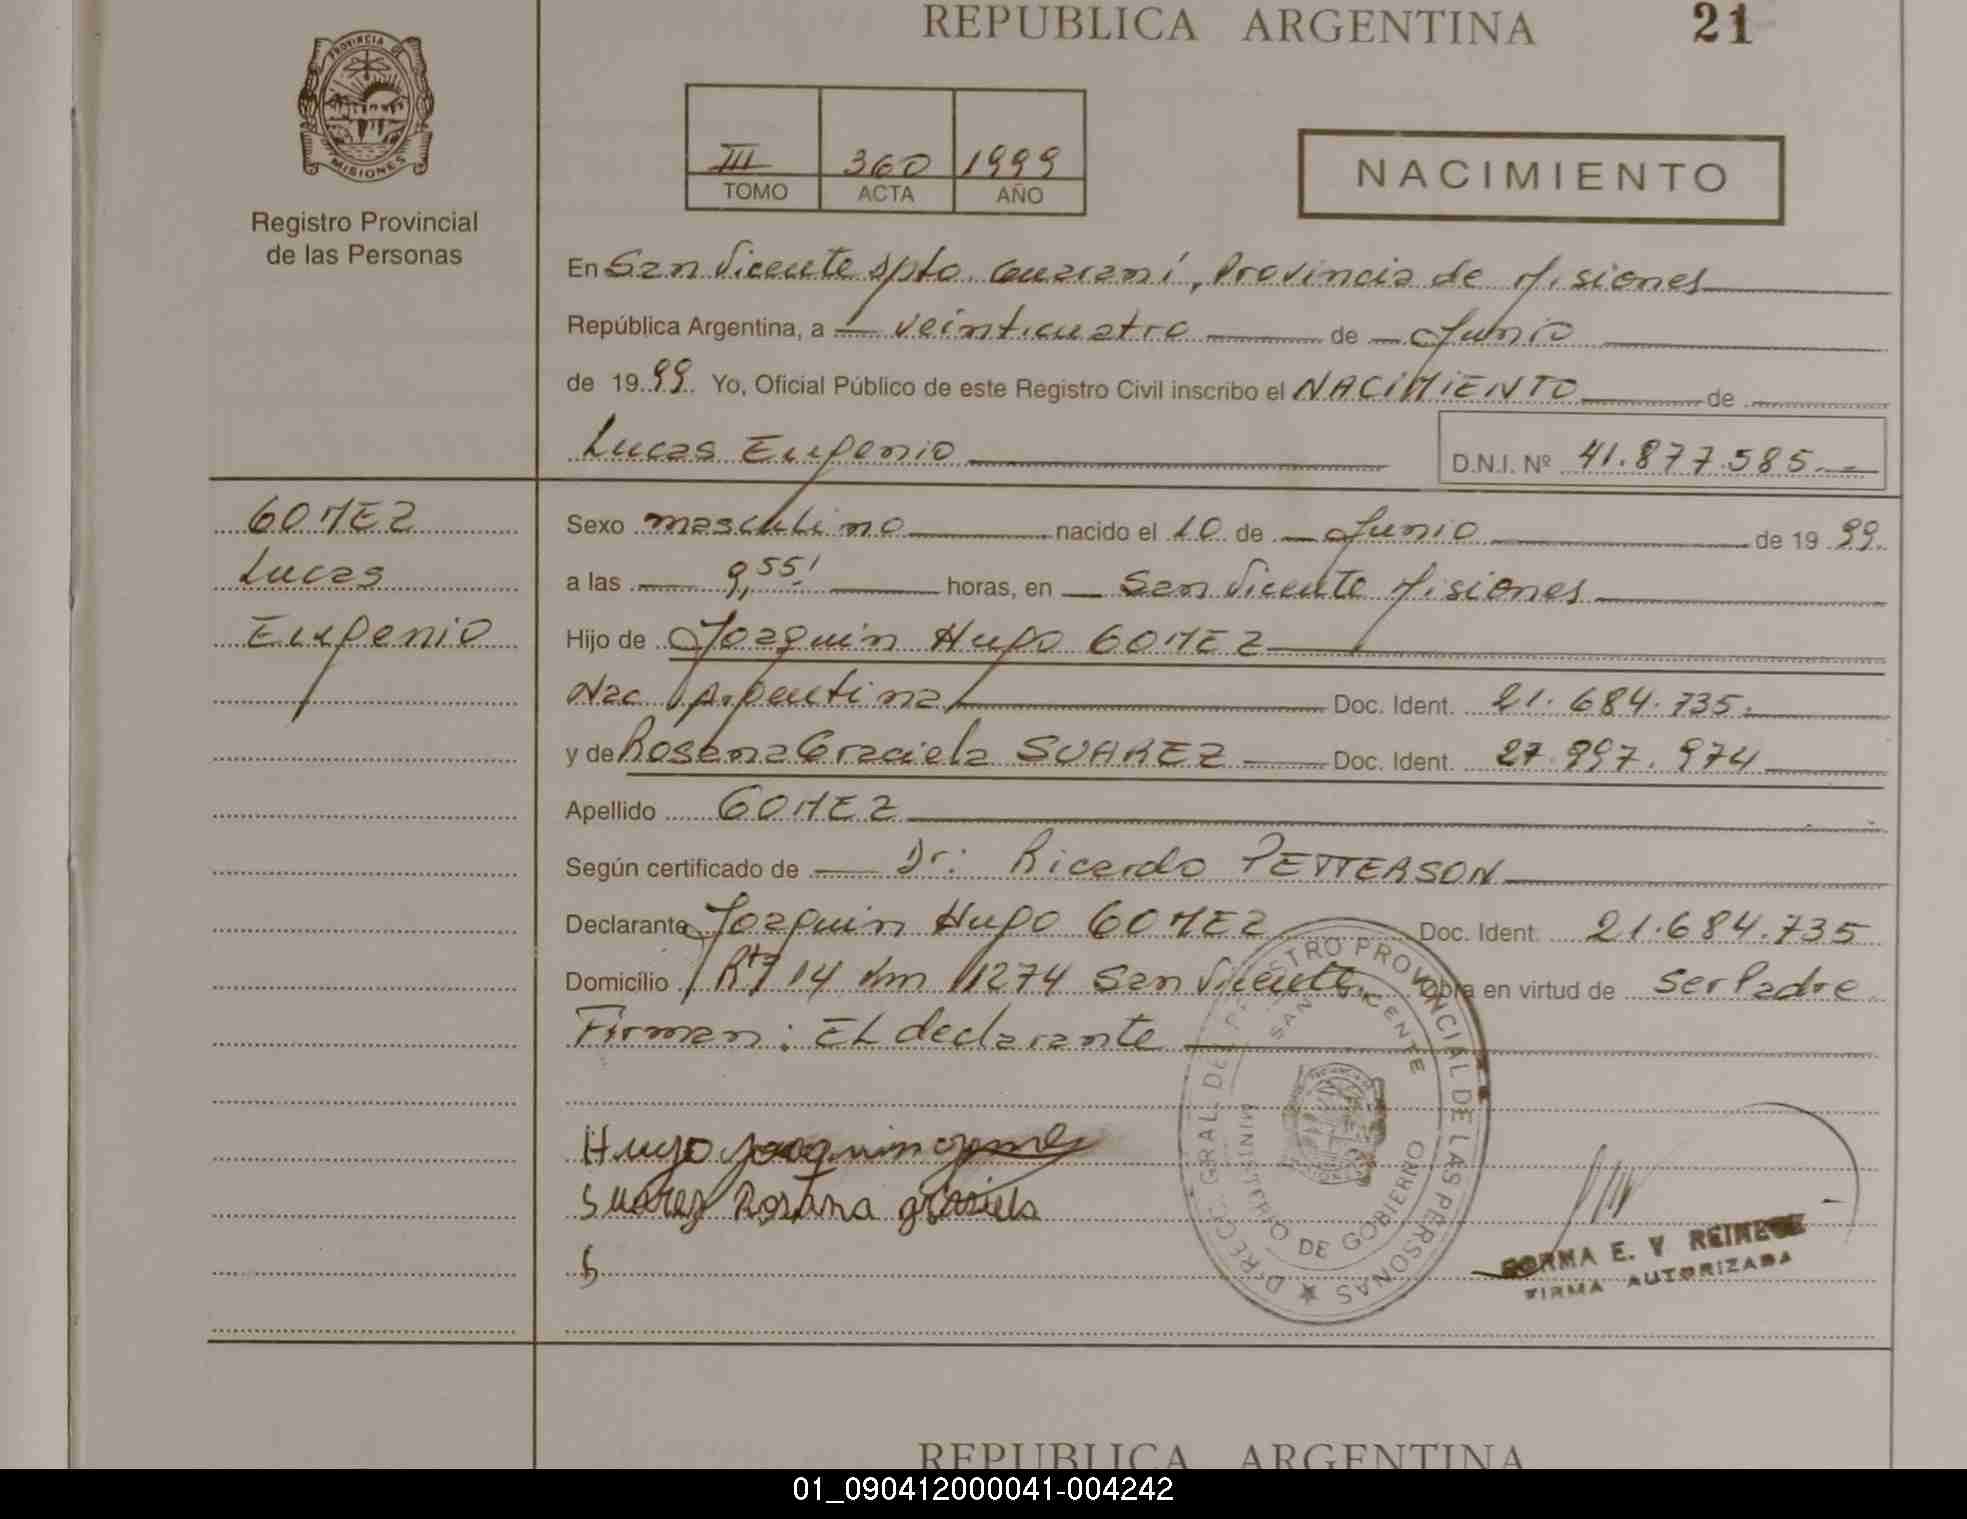 REPUBLICA ARGENTINA 21
PROVINCIA DE
MISIONES
Registro Provincial
de las Personas
III 360 1999
TOMO ACTA AÑO
NACIMIENTO
En San Vicente Dpto. Guaraní, Provincia de Misiones
República Argentina, a veinticuatro de Junio
de 1999 Yo, Oficial Público de este Registro Civil inscribo el NACIMIENTO de
Lucas Eugenio D.N.I. Nº 41.877.585.
GOMEZ
Lucas
Eugenio
Sexo masculino nacido el 10 de Junio de 1999.
a las 9,55' horas, en San Vicente Misiones
Hijo de Joaquin Hugo GOMEZ
Nac. Argentina Doc. Ident. 21.684.735.
y de Rosana Graciela SUAREZ Doc. Ident. 27.997.974
Apellido GOMEZ
Según certificado de Dr: Ricardo PETTERSON
Declarante Joaquin Hugo GOMEZ Doc. Ident. 21.684.735
Domicilio Rta 14 Km 1274 San Vicente. Obra en virtud de ser Padre
Firman: El declarante
DIRECC. GRAL. DEL REGISTRO PROVINCIAL DE LAS PERSONAS
SAN VICENTE
MINISTERIO DE GOBIERNO
Hugo Joaquin gomes
Suarez Rosana grasiela
S
NORMA E. V
FIRMA AUTORIZADA
REPUBLICA ARGENTINA
01_090412000041-004242